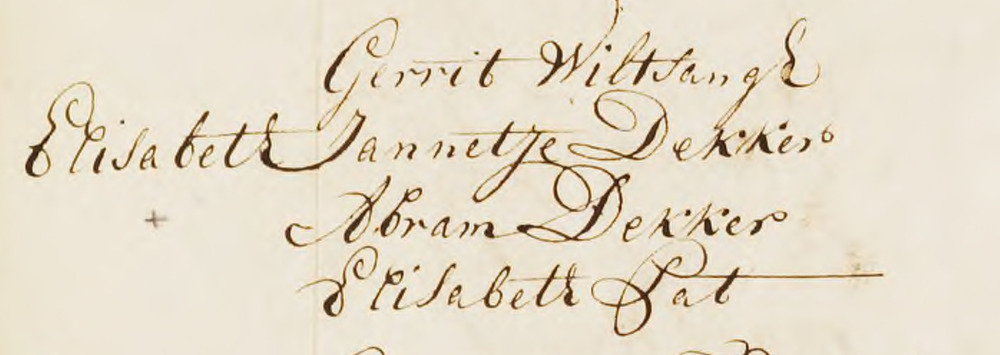 Gerrit Wiltsangh
Elisabeth Jannetje Dekkers
+ Abram Dekker
Elisabeth Pat